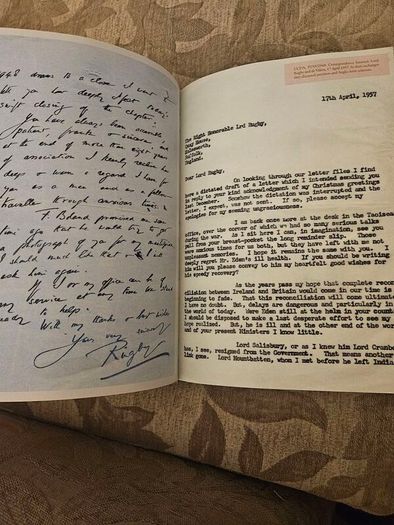 1948 draws to a close I want
the closing of the chapter.
You have always been accessible,
patient, frank & sincere and
at the end of more than eight years
of association I
as a man and as a fellow
traveller through anxious times.
F. Boland promised me some
time ago that he would try to get
a photograph of you for my
I should much like that
ask him again.
If I or my office can be of
service at any time we shall
to help.
With my thanks & best wishes
Yours very sincerely
Rugby
Correspondence between Lord
Rugby and de Valera, 17 April 1957. In their exchanges
they discussed partition and Anglo-Irish relations.
17th April, 1957
The Right Honorable Lrd Rugby,
House,
Halesworth,
Suffolk,
England.
Dear Lord Rugby,
On looking through our letter files I find
here a dictated draft of a letter which I intended sending you
in reply to your kind acknowledgment of my Christmas greetings
in December. Somehow the dictation was interrupted and the
letter, I expect, was not sent. If so, please accept my
apologies for my seeming ungraciousness.
I am back once more at the desk in the Taoiseach's
office, over the corner of which we had so many serious talks
during the war. As I sit here I can, in imagination, see you
pull from your breast-pocket the long reminder slip. Those
were anxious times for us both, but they have left with me not
unpleasant memories. I hope it is the same with you. I
deeply regret Mr. Eden's ill health. If you should be writing
to him will you please convey to him my heartfelt good wishes for
his speedy recovery?
As the years pass my hope that complete recon-
ciliation between Ireland and Britain would come in our time is
beginning to fade. That this reconciliation will come ultimately
I have no doubt. But, delays are dangerous particularly in
the world of today. Were Eden still at the helm in your country
I should be disposed to make a last desperate effort to see my
hope realized. But, he is ill and at the other end of the world
and of your present Ministers I know little.
Lord Salisbury, or as I knew him Lord Cranborne
has, I see, resigned from the Government. That means another
link gone. Lord Mountbatten, whom I met before he left India